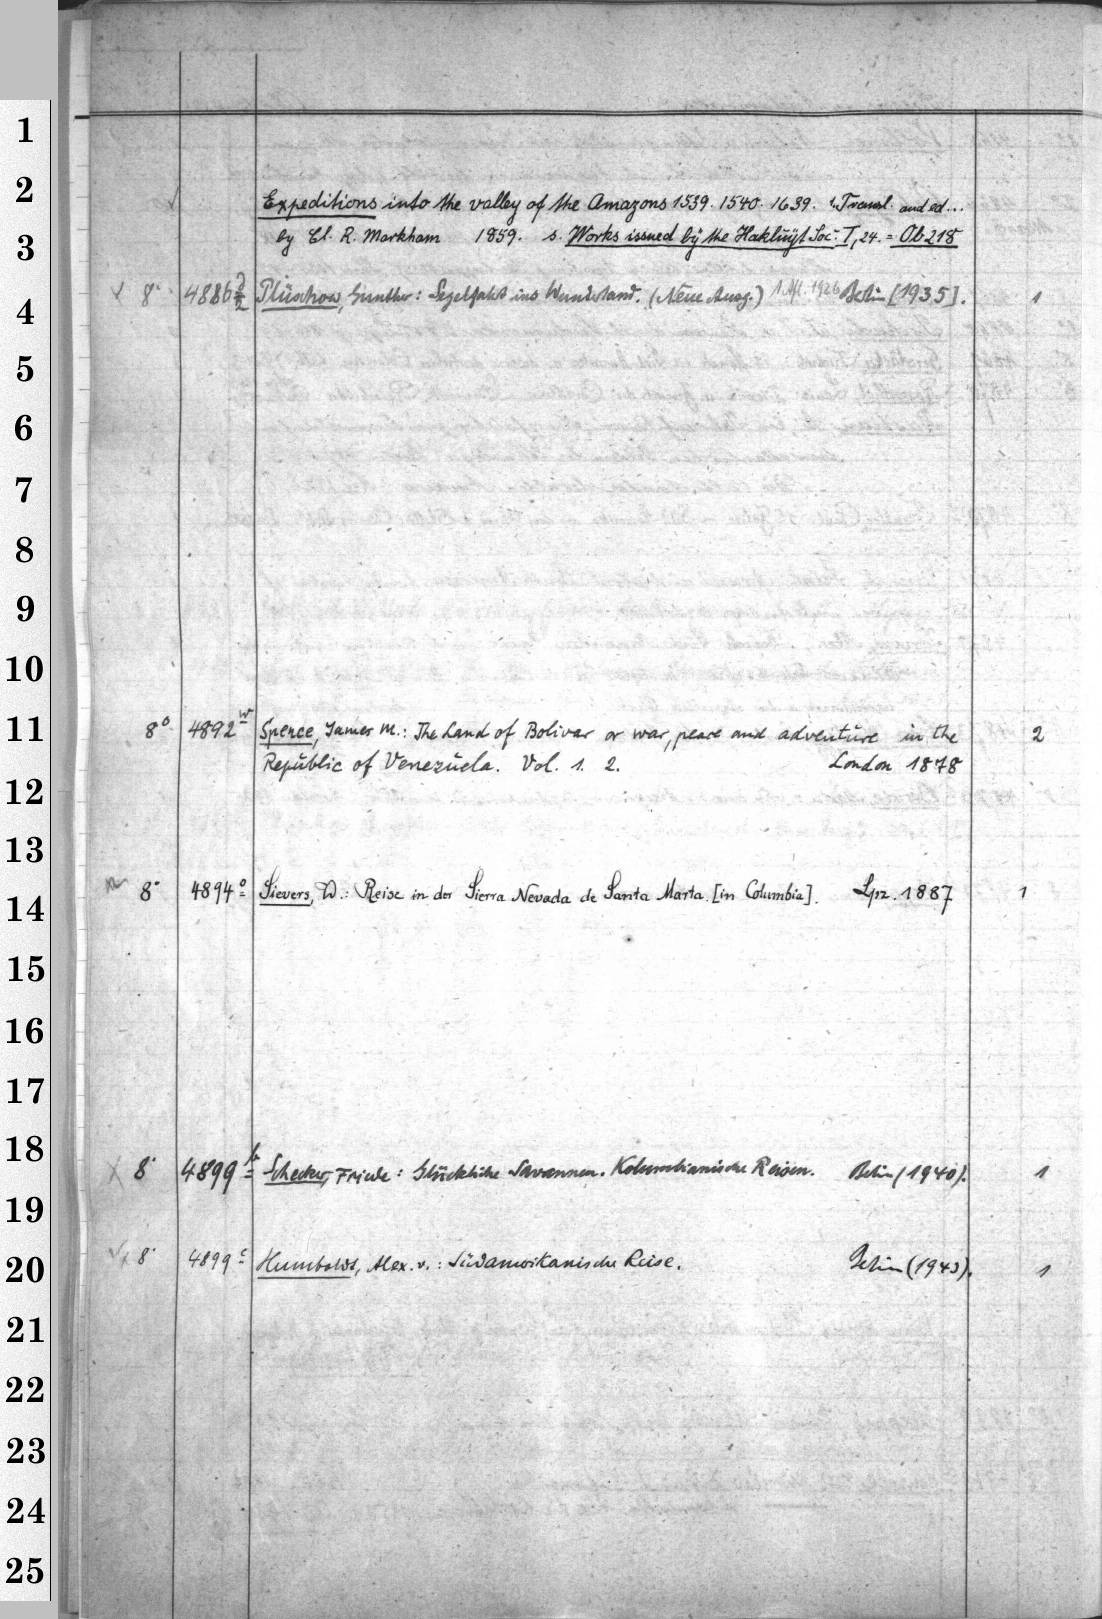 1
2
Expeditions into the valley of the Amazons 1539. 1540. 1639. Transl. and ed...
3
by Cl. R. Markham 1859. s. Works issued by the Hakluyt Soc. I, 24. = Ob 218
8° 4886 Plüschow, Gunther: Segelfahrt ins Wunderland. (Neue Ausg.) 1. Afl. 1926 Berlin [1935]. 1
4
5
6
7
8
9
10
11
8° 4892 w Spence, James M.: The Land of Bolivar or war, peace and adventure in the 2
Republic of Venezuela. Vol. 1. 2. London 1878
12
13
8° 4894 o Sievers, W.: Reise in der Sierra Nevada de Santa Marta. [in Columbia]. Lpz. 1887 1
14
15
16
17
18
8° 4899 b Schecker, Friede: Glückliche Savannen. Kolumbianische Reisen. Berlin (1940). 1
19
8° 4899 c Humboldt, Alex. v.: Südamerikanische Reise. Berlin (1943). 1
20
21
22
23
24
25